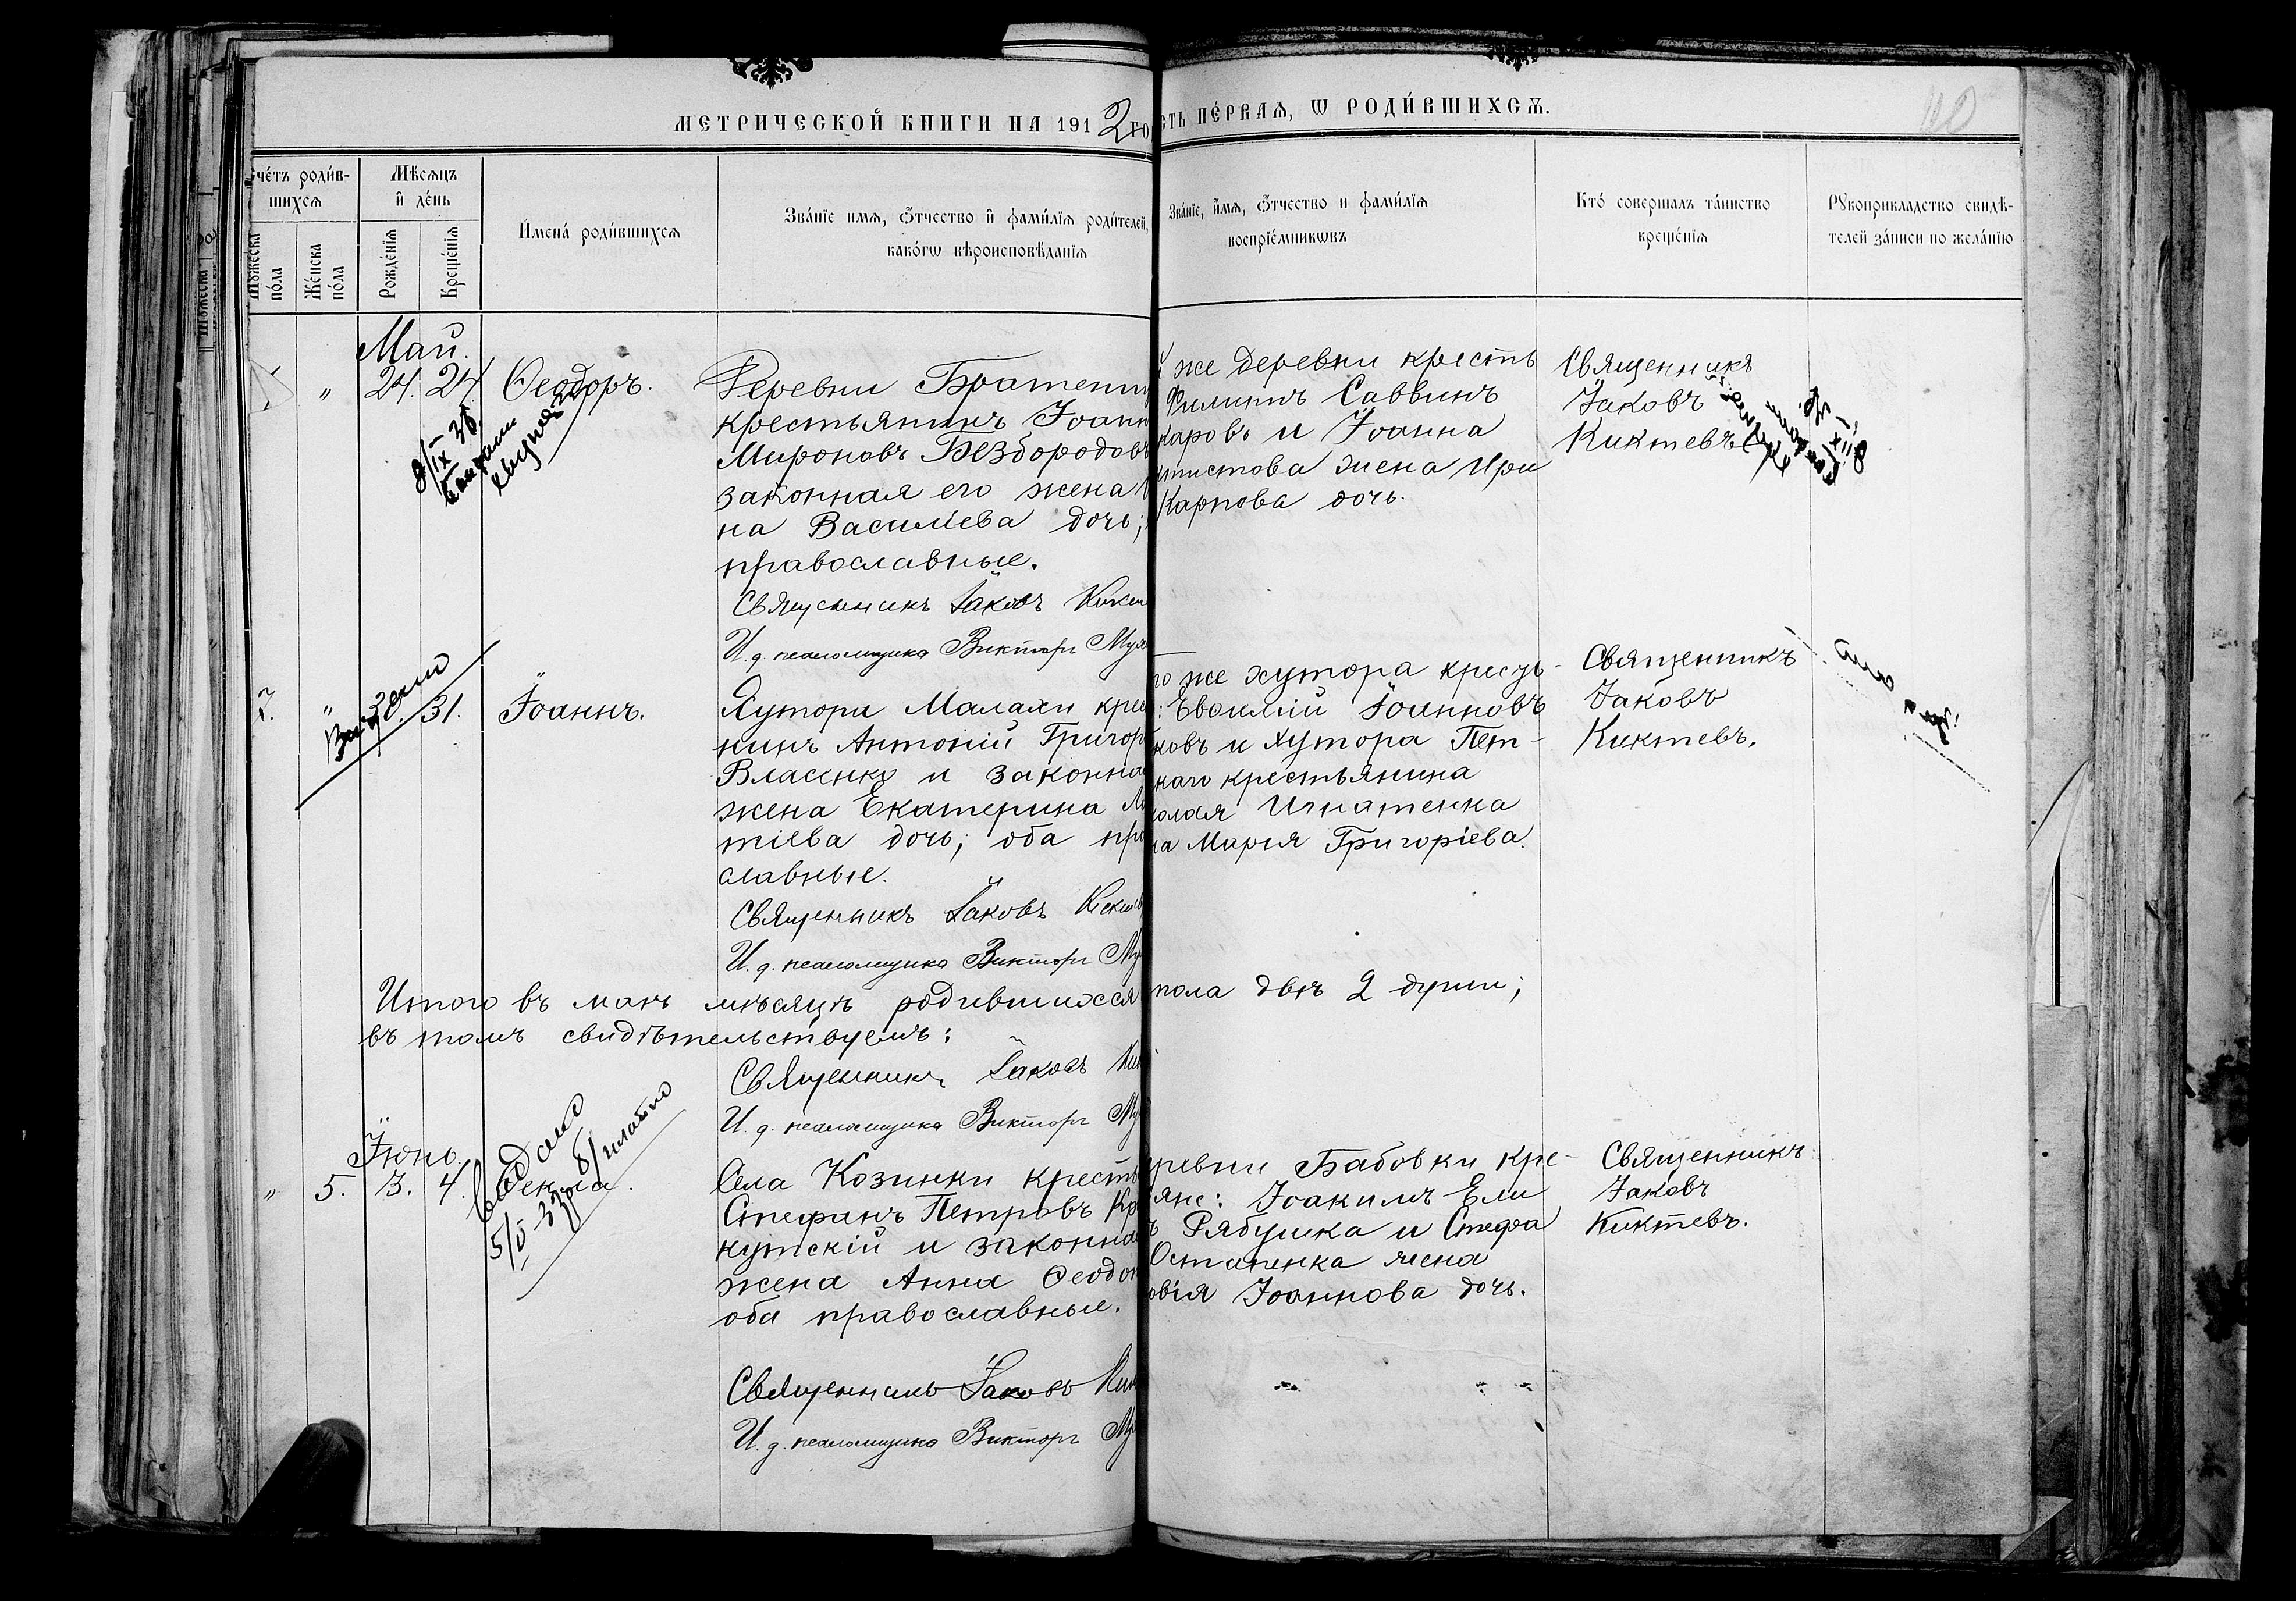 МЕТРИЧЕСКОЙ КНИГИ НА 1912 го
СТЬ ПЕ́РВАѦ, Ѡ РОДИ́ВШИХСѦ.
110
чéтъ роди́в-
шихсѧ
Мѣсѧцъ
и де́нь
И́мена́ роди́вшихсѧ
Зва́нїе имѧ, ѻтчество и фами́лїѧ роди́телей,
како́гѡ вѣроисповѣ́данїѧ
Мꙋжеска
по́ла
Же́нска
по́ла
Рожде́нїѧ
Креще́нїѧ
Зва́нїе, и́мѧ, ѻтчество и фами́лїѧ
воспрїе́мникѡвъ
Кто́ соверша́лъ та́инство
креще́нїѧ
Рꙋкоприкладство свидѣ́-
телей за́писи по жела́нїю
Май.
" 24. 24. Ѳеодоръ.
Деревни Братени
крестьянинъ Іоанн
Мироновъ Бездородовъ
законная его жена
на Василіева дочь;
православные.
Священникъ Іаковъ Кикте
И. д. псаломщика Викторъ Му
й же деревни кресть
Филиппъ Саввинъ
каровъ и Іоанна
жена Ири
Карпова дочь.
Священникъ
Іаковъ
Киктевъ
7. " 30. 31. Іоаннъ.
Хутора Малахи крес
нинъ Антоній Григор
Власенко и законна
жена Екатерина М
тіева дочь; оба пра
славные.
Священникъ Іаковъ Киктев
И. д. псаломщика Викторъ Му
го же хутора кресть-
Іоанновъ
ковъ и хутора Пет-
наго крестьянина
колая Игнатенка
на Марія Григоріева.
Священникъ
Іаковъ
Киктевъ.
Итого въ маѣ мѣсяцѣ родившихся
пола двѣ 2 души;
въ томъ свидѣтельствуемъ:
Священникъ Іаковъ Кик
И. д. псаломщика Викторъ Му
Іюнь.
" 5. 3. 4.
Села Козинки кресть
Стефанъ Петровъ Кр
кутскій и законна
жена Анна Ѳеодо
оба православные.
Священникъ Іаковъ Кик
И. д. псаломщика Викторъ Му
ревни Бабовки кре-
янс: Іоакимъ Ели
ъ Рябушка и Стефа
Остапенка жена
овія Іоаннова дочь.
Священникъ
Іаковъ
Киктевъ.